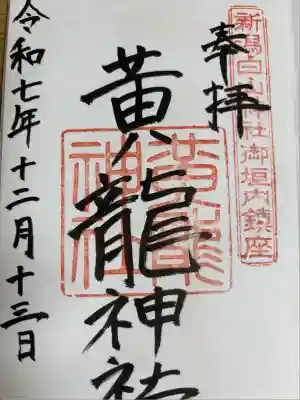 新潟白山神社御垣内鎮座
奉拝
黄龍神社
黄龍神社
令和七年十二月十三日